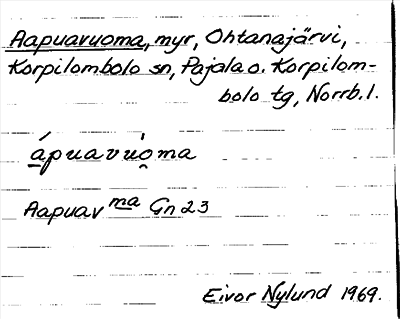 Aapuavuoma, myr, Ohtanajärvi,
Korpilombolo sn, Pajala o. Korpilom-
bolo tg, Norrb. l.
á̱puavuȯ̯ma
Aapuavma Gn 23
Eivor Nylund 1969.